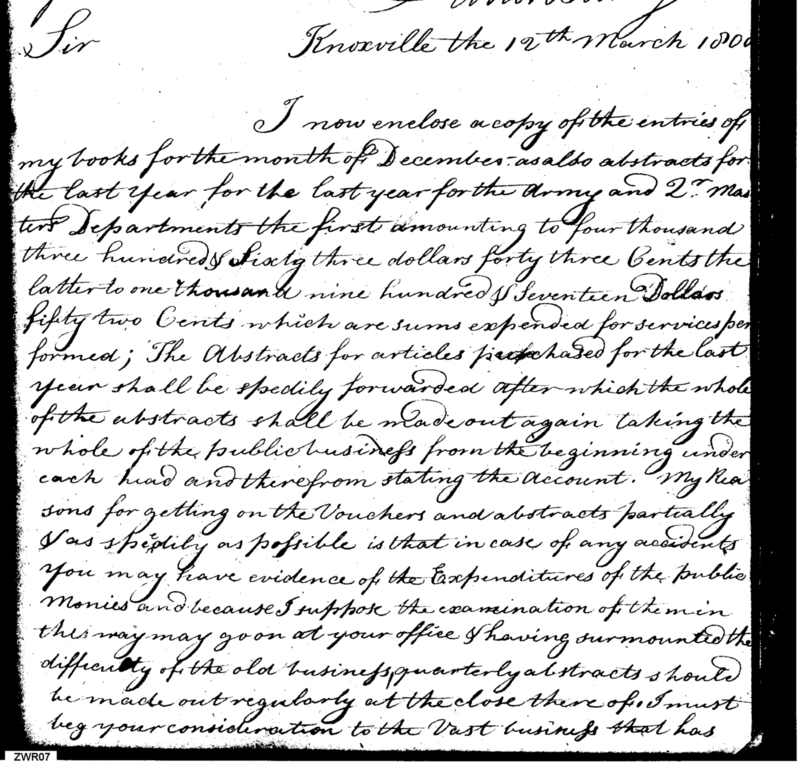 Sir
Knoxville the 12th March 180
I now enclose a copy of the entries of
my books for the month of December - as also abstracts for
the last Year for the last year for the Army and Qr. Mas
ters Departments the first amounting to four thousand
three hundred & Sixty three dollars forty three Cents the
latter to one thousand nine hundred & Seventeen Dollars
fifty two Cents which are sums expended for services per
formed; The Abstracts for articles purchased for the last
year shall be spedily forwarded after which the whole
of the abstracts shall be made out again taking the
whole of the public business from the beginning under
each head and therefrom stating the account. My Rea
sons for getting on the Vouchers and abstracts partially
& as spedily as possible is that in case of any accidents
you may have evidence of the Expenditures of the public
Monies and because I suppose the examination of them in
this way may go on at your office & having surmounted the
difficulty of the old business, quarterly abstracts should
be made out regularly at the close there of. I must
beg your consideration to the Vast business that has
ZWR07